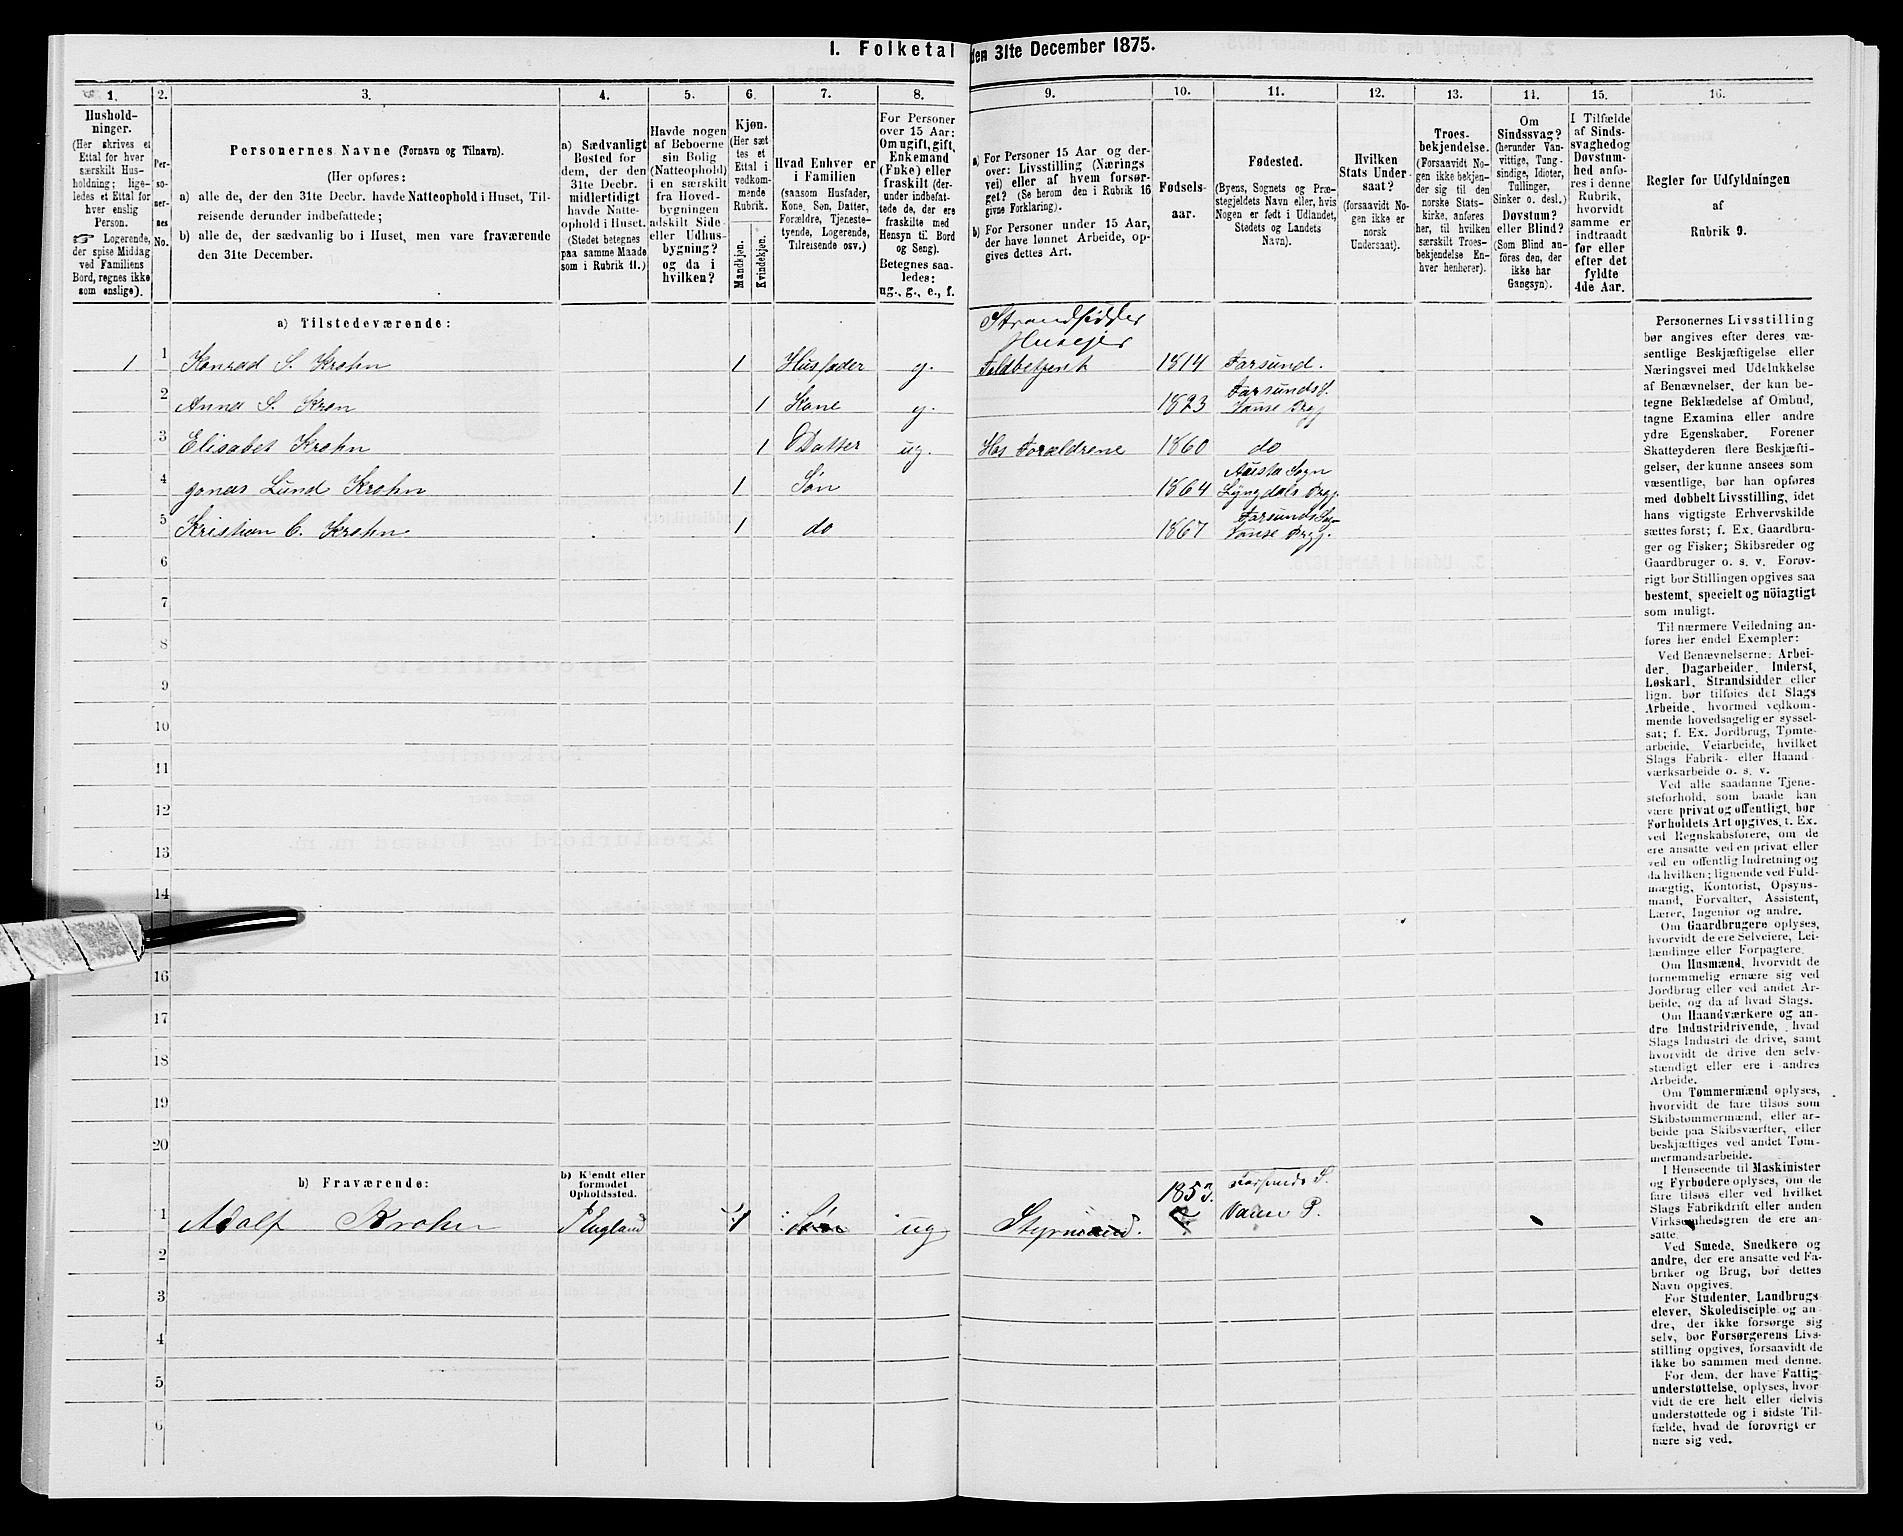 1. Folketal den 31te December 1875.
1. 2. 3. 4. 5. 6. 7. 8. 9. 10. 11. 12. 13. 14. 15. 16.
Hushold-
ninger.
(Her skrives et
Ettal for hver
særskilt Hus-
holdning; lige-
ledes et Ettal for
hver enslig
Person.
☞ Logerende,
der spise Middag
ved Familiens
Bord, regnes ikke
som enslige).
Per-
so-
ner-
nes
No.
Personernes Navne (Fornavn og Tilnavn).
(Her opføres:
a) alle de, der den 31te Decbr. havde Natteophold i Huset, Til-
reisende derunder indbefattede;
b) alle de, der sædvanlig bo i Huset, men vare fraværende
den 31te December.
a) Sædvanligt
Bosted for
dem, der den
31te Decbr.
midlertidigt
havde Natte-
ophold i Huset.
(Stedet betegnes
paa samme Maade
som i Rubrik 11.)
Havde nogen
af Beboerne
sin Bolig
(Natteophold)
i en særskilt
fra Hoved-
bygningen
adskilt Side-
eller Udhus-
bygning?
og da i
hvilken?
Kjøn.
(Her sæt-
tes et
Ettal i
vedkom-
mende
Rubrik.
Mandkjøn.
Kvindekjøn.
Hvad Enhver er
i Familien
(saasom Husfader,
Kone, Søn, Datter,
Forældre, Tjeneste-
tyende, Logerende,
Tilreisende osv.)
For Personer
over 15 Aar:
Om ugift, gift,
Enkemand
(Enke) eller
fraskilt (der-
under indbefat-
tede de, der ere
fraskilte med
Hensyn til Bord
og Seng).
Betegnes saa-
ledes:
ug., g., e., f.
a) For Personer 15 Aar og der-
over: Livsstilling (Nærings-
vei) eller af hvem forsør-
get? (Se herom den i Rubrik 16
givne Forklaring).
b) For Personer under 15 Aar,
der have lønnet Arbeide, op-
gives dettes Art.
Fødsels-
aar.
Fødested.
(Byens, Sognets og Præ-
stegjeldets Navn eller, hvis
Nogen er født i Udlandet,
Stedets og Landets
Navn).
Hvilken
Stats Under-
saat?
(forsaavidt No-
gen ikke er
norsk
Undersaat).
Troes-
bekjendelse.
(Forsaavidt No-
gen ikke bekjen-
der sig til den
norske Stats-
kirke, anføres
her, til hvilken
særskilt Troes-
bekjendelse En-
hver henhører).
Om
Sindssvag?
(herunder Van-
vittige, Tung-
sindige, Idioter,
Tullinger,
Sinker o. desl.)
Døvstum?
eller Blind?
(Som Blind an-
føres den, der
ikke har
Gangsyn).
I Tilfælde
af Sinds-
svaghed og
Døvstum-
hed anfø-
res i denne
Rubrik,
hvorvidt
samme er
indtraadt
før eller
efter det
fyldte
4de Aar.
Regler for Udfyldningen
af
Rubrik 9.
a) Tilstedeværende:
Strandsidder
Huseier
1 1 Konrad S. Krohn 1 Husfader g. Toldbetjent 1814 Farsund.
Farsunds S.
2 Anna S. Kron 1 Kone g. 1823 Vanse Prgj
3 Elisabet Krohn 1 Datter ug. Hos Forældrene 1860 do
Austa Sogn
4 Jonas Lund Krohn 1 Søn 1864 Lyngdals Prgj.
Farsunds Sog-
5 Kristian C. Krohn 1 do 1867 Vanse Prgj.
6
7
8
9
10
11
12
13
14
16
17
18
19
20
b) Fraværende:
b) Kjendt eller
formodet
Opholdssted.
1853. Farsunds S.
1 Adolf Krohn I England 1 Søn ug Styrmand. Vanse P.
2
3
4
5
6
Personernes Livsstilling
bør angives efter deres væ-
sentlige Beskjæftigelse eller
Næringsvei med Udelukkelse
af Benævnelser, der kun be-
tegne Beklædelse af Ombud,
tagne Examina eller andre
ydre Egenskaber. Forener
Skatteyderen flere Beskjæfti-
gelser, der kunne ansees som
væsentlige, bør han opføres
med dobbelt Livsstilling, idet
hans vigtigste Erhvervskilde
sættes først; f. Ex. Gaardbru-
ger og Fisker; Skibsreder og
Gaardbruger o. s. v. Forøv-
rigt bør Stillingen opgives saa
bestemt, specielt og nöiagtigt
som muligt.
Til nærmere Veiledning an-
føres her endel Exempler:
Ved Benævnelserne: Arbei-
der, Dagarbeider, Inderst,
Løskarl, Strandsidder eller
lign. bør tilføies det Slags
Arbeide, hvormed vedkom-
mende hovedsagelig er syssel-
sat; f. Ex. Jordbrug, Tømte-
arbeide, Veiarbeide, hvilket
Slags Fabrik- eller Haand
værksarbeide o. s. v.
Ved alle saadanne Tjene-
steforhold, som baade kan
være privat og offentligt, bør
Forholdets Art opgives, t. Ex.
ved Regnskabsførere, om de
ere ansatte ved en privat eller
ved en offentlig Indretning og
da hvilken; lignende ved Fuld-
mægtig, Kontorist, Opsyns-
mand, Forvalter, Assistent,
Lærer, Ingeniør og andre.
Om Gaardbrugere oplyses,
hvorvidt de ere Selveiere, Lei-
lændinge eller Forpagtere.
Om Husmænd, hvorvidt de
fornemmelig ernære sig ved
Jordbrug eller ved andet Ar-
beide, og da af hvad Slags.
Om Haandværkere og an-
dre Industridrivende, hvad
Slags Industri de drive, samt
hvorvidt de drive den selv-
stændigt eller ere i andres
Arbeide.
Om Tømmermænd oplyses,
hvorvidt de fare tilsøs som
Skibstømmermænd, eller ar-
beide paa Skibsværfter, eller
beskjæftiges ved andet Tøm-
mermandsarbeide.
I Henseende til Maskinister
og Fyrbødere oplyses, om de
fare tilsøs eller ved hvilket
Slags Fabrikdrift eller anden
Virksomhedsgren de ere an-
satte.
Ved Smede, Snedkere og
andre, der ere ansatte ved Fa-
briker og Brug, bør dettes
Navn opgives.
For Studenter, Landbrugs-
elever, Skoledisciple og an-
dre, der ikke forsørge sig
selv, bør Forsørgerens Livs-
stilling opgives, forsaavidt de
ikke bo sammen med denne.
For dem, der have Fattig-
understøttelse, oplyses, hvor-
vidt de ere helt eller delvis
understøttede og i sidste Til-
fælde, hvad de forøvrigt er
nære sig ved.